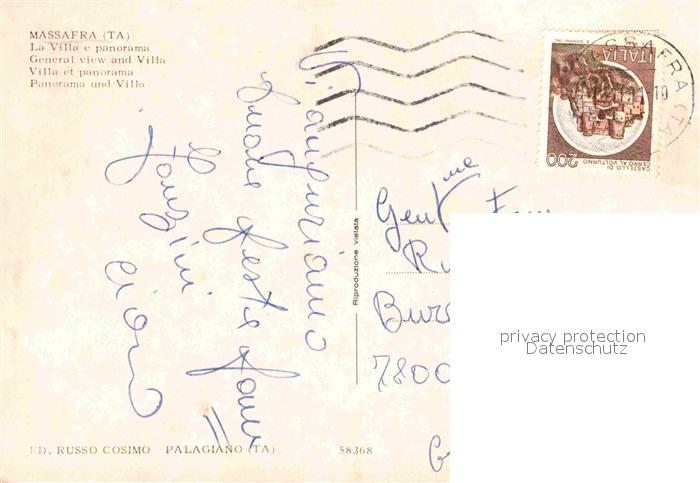 MASSAFRA (TA)
La Villa e panorama
General view and Villa
Villa et panorama
Panorama und Villa
Vi auguriamo
buone feste
ciao
ITALIA
CASTELLO DI
CERRO AL VOLTURNO
200
MASSAFRA (TA)
Riproduzione vietata
Gent.me Fam
Bur
7800
privacy protection
Datenschutz
ED. RUSSO COSIMO PALAGIANO (TA) 58368